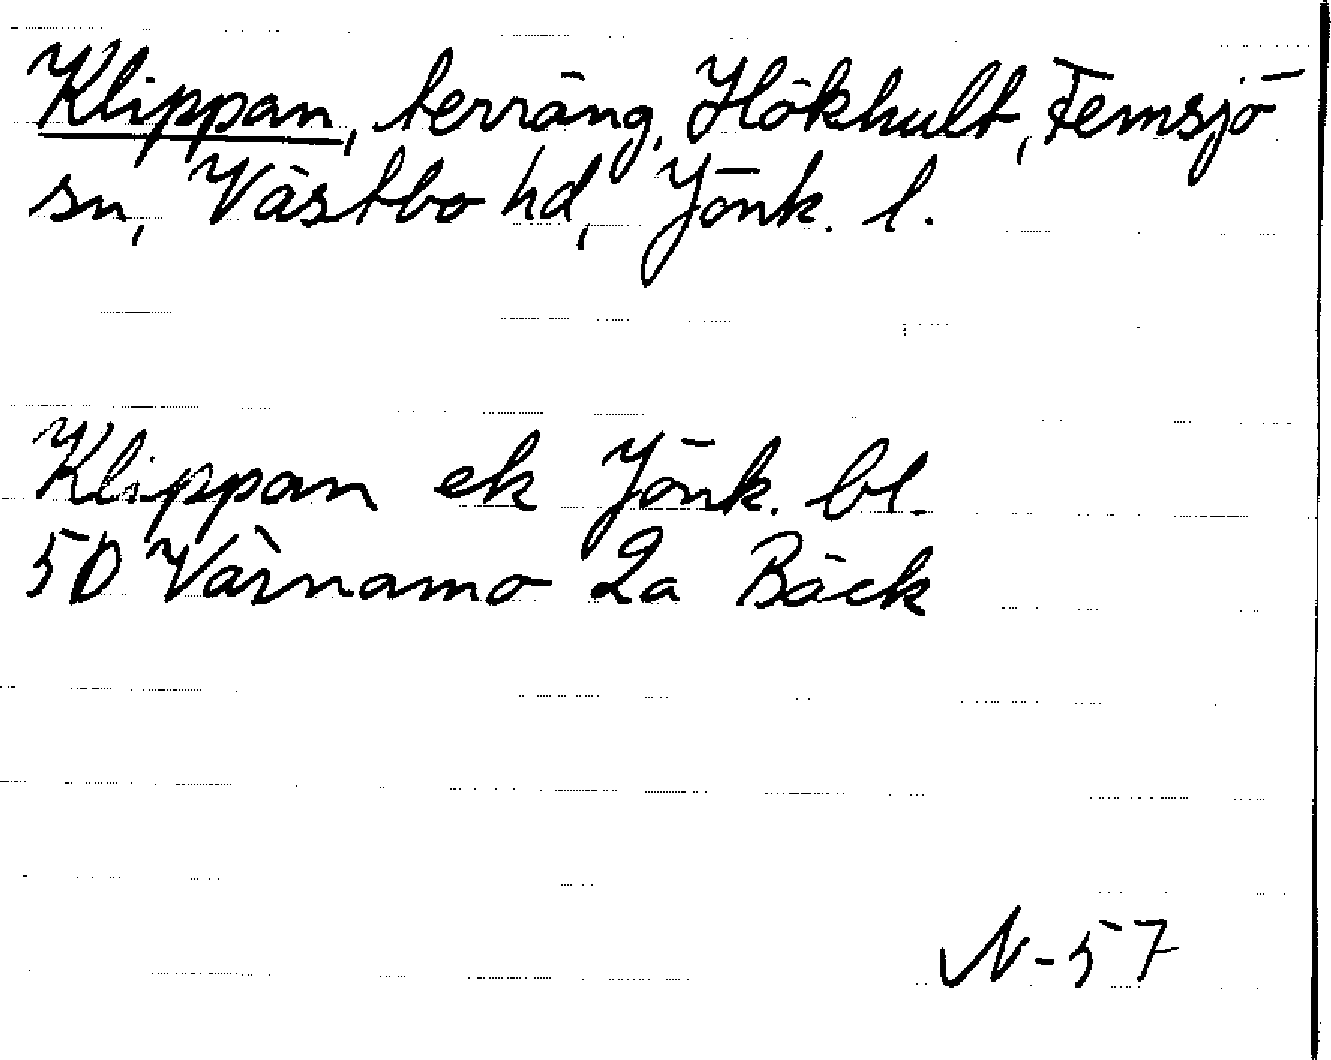 Klippan, terräng, Hökhult, Femsjö
sn, Västbo hd, Jönk. l.
Klippan ek Jönk. bl.
5D Värnamo 2a Bäck
N-57